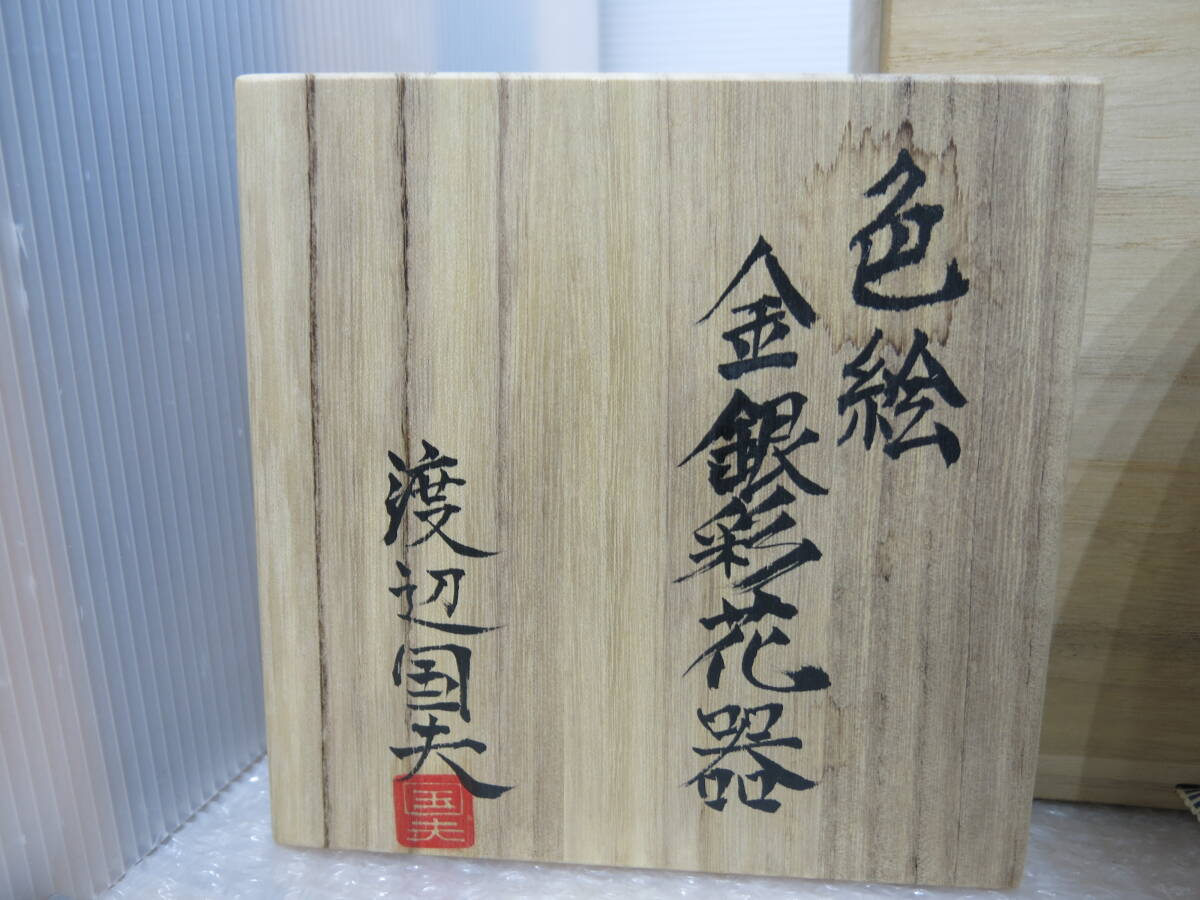 色絵
金銀彩花器
渡辺国夫
国夫